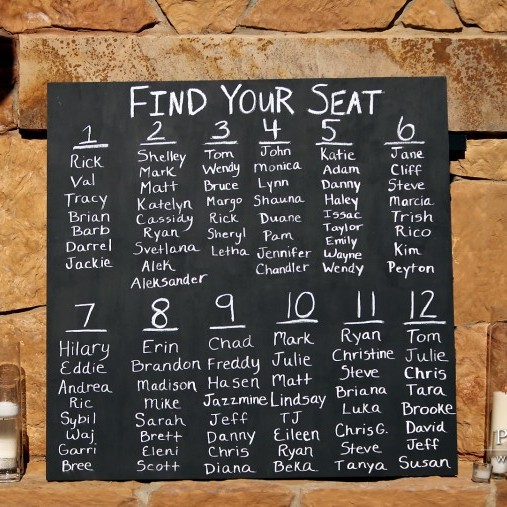 FIND YOUR SEAT
1
Rick
Val
Tracy
Brian
Barb
Darrel
Jackie
2
Shelley
Mark
Matt
Katelyn
Cassidy
Ryan
Svetlana
Alek
Aleksander
3
Tom
Wendy
Bruce
Margo
Rick
Sheryl
Letha
4
John
Monica
Lynn
Shauna
Duane
Pam
Jennifer
Chandler
5
Katie
Adam
Danny
Haley
Issac
Taylor
Emily
Wayne
Wendy
6
Jane
Cliff
Steve
Marcia
Trish
Rico
Kim
Peyton
7
Hilary
Eddie
Andrea
Ric
Sybil
Waj
Garri
Bree
8
Erin
Brandon
Madison
Mike
Sarah
Brett
Eleni
Scott
9
Chad
Freddy
Hasen
Jazzmine
Jeff
Danny
Chris
Diana
10
Mark
Julie
Matt
Lindsay
TJ
Eileen
Ryan
Beka
11
Ryan
Christine
Steve
Briana
Luka
Chris G.
Steve
Tanya
12
Tom
Julie
Chris
Tara
Brooke
David
Jeff
Susan